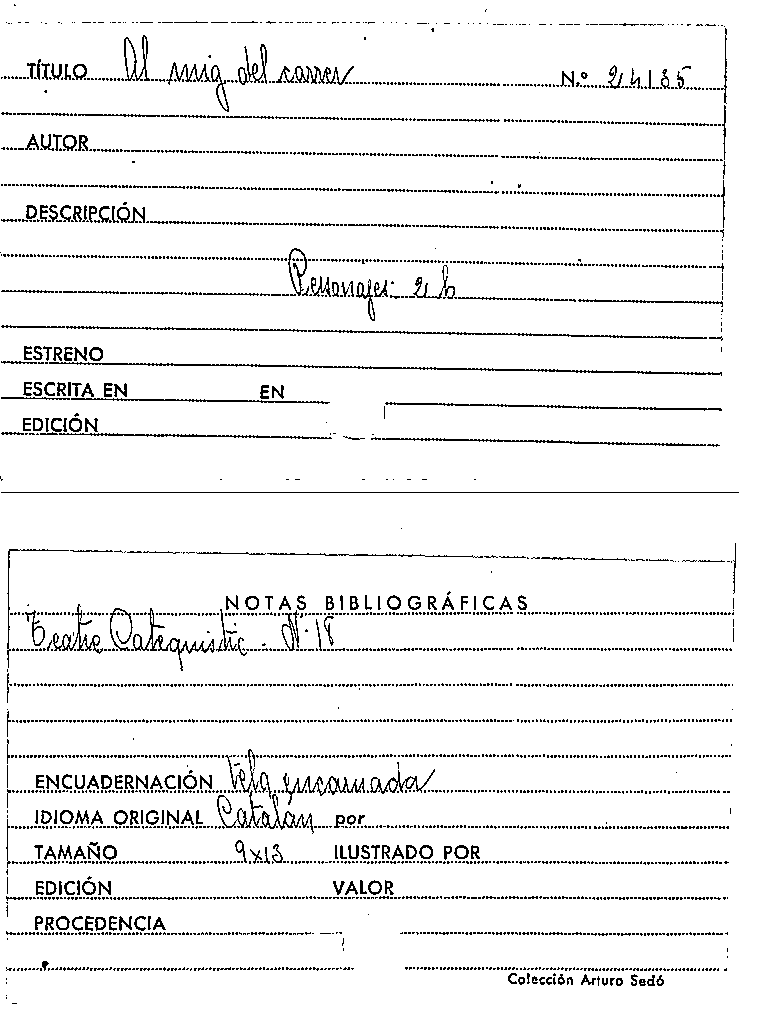 TÍTULO Al mig del carrer N.º 24135
AUTOR
DESCRIPCIÓN
Personajes: 2 h
ESTRENO
ESCRITA EN EN
EDICIÓN
NOTAS BIBLIOGRÁFICAS
Teatre Catequistic - Nº 18
ENCUADERNACIÓN Tela encarnada
IDIOMA ORIGINAL Catalán por
TAMAÑO 9x13 ILUSTRADO POR
EDICIÓN VALOR
PROCEDENCIA
Colección Arturo Sedó